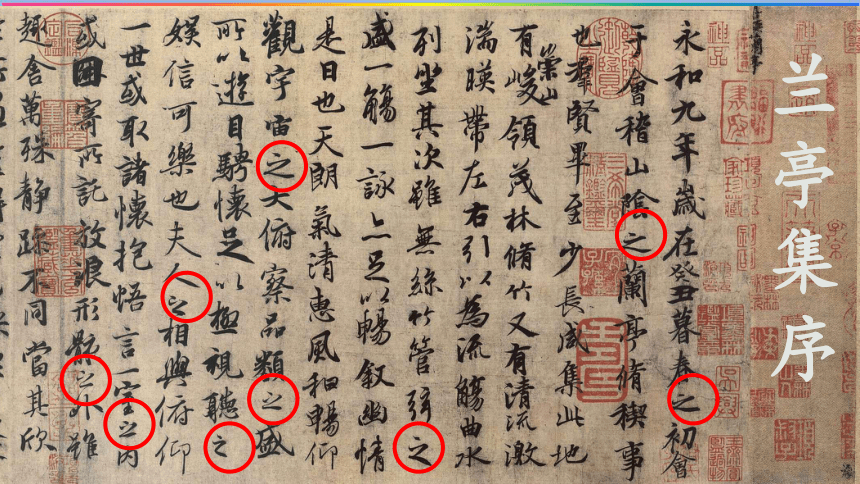 兰亭集序
永和九年歲在癸丑暮春之初會
于會稽山陰之蘭亭脩稧事
也羣賢畢至少長咸集此地
有崇山峻領茂林脩竹又有清流激
湍暎帶左右引以為流觴曲水
列坐其次雖無絲竹管弦之
盛一觴一詠亦足以暢敘幽情
是日也天朗氣清惠風和暢仰
觀宇宙之大俯察品類之盛
所以遊目騁懷足以極視聽之
娛信可樂也夫人之相與俯仰
一世或取諸懷抱悟言一室之內
或因寄所託放浪形骸之外雖
趣舍萬殊靜躁不同當其欣